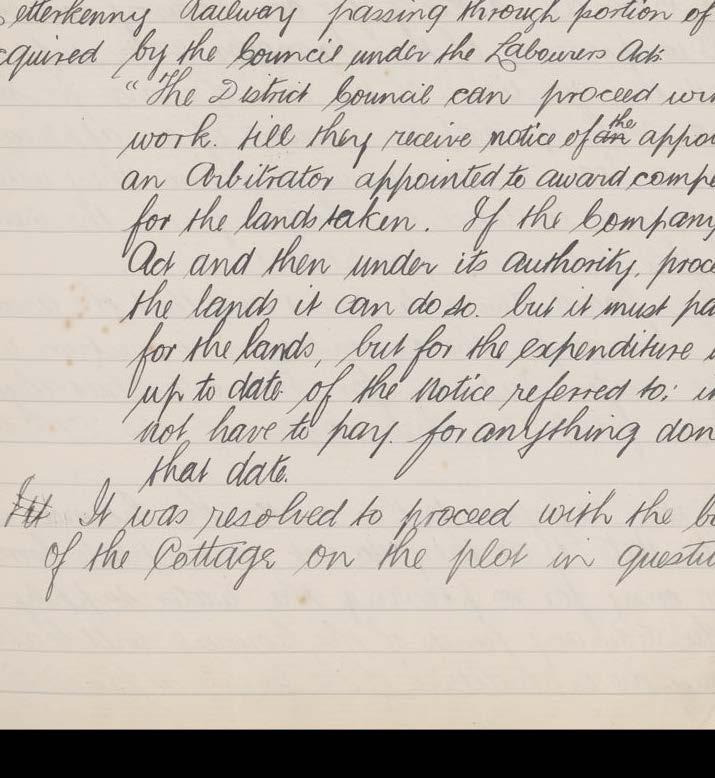 etterkenny Railway passing through portion of
cquired by the Council under the Labourers Acts.
"The District Council can proceed wi
work. till they receive notice of an the appoi
an Arbitrator appointed to award compe
for the lands taken. If the Company
Act and then under its authority, proc
the lands it can do so. but it must pa
for the lands, but for the expenditure
up to date of the Notice referred to; i
not have to pay for anything don
that date.
It was resolved to proceed with the b
of the Cottage on the plot in questi